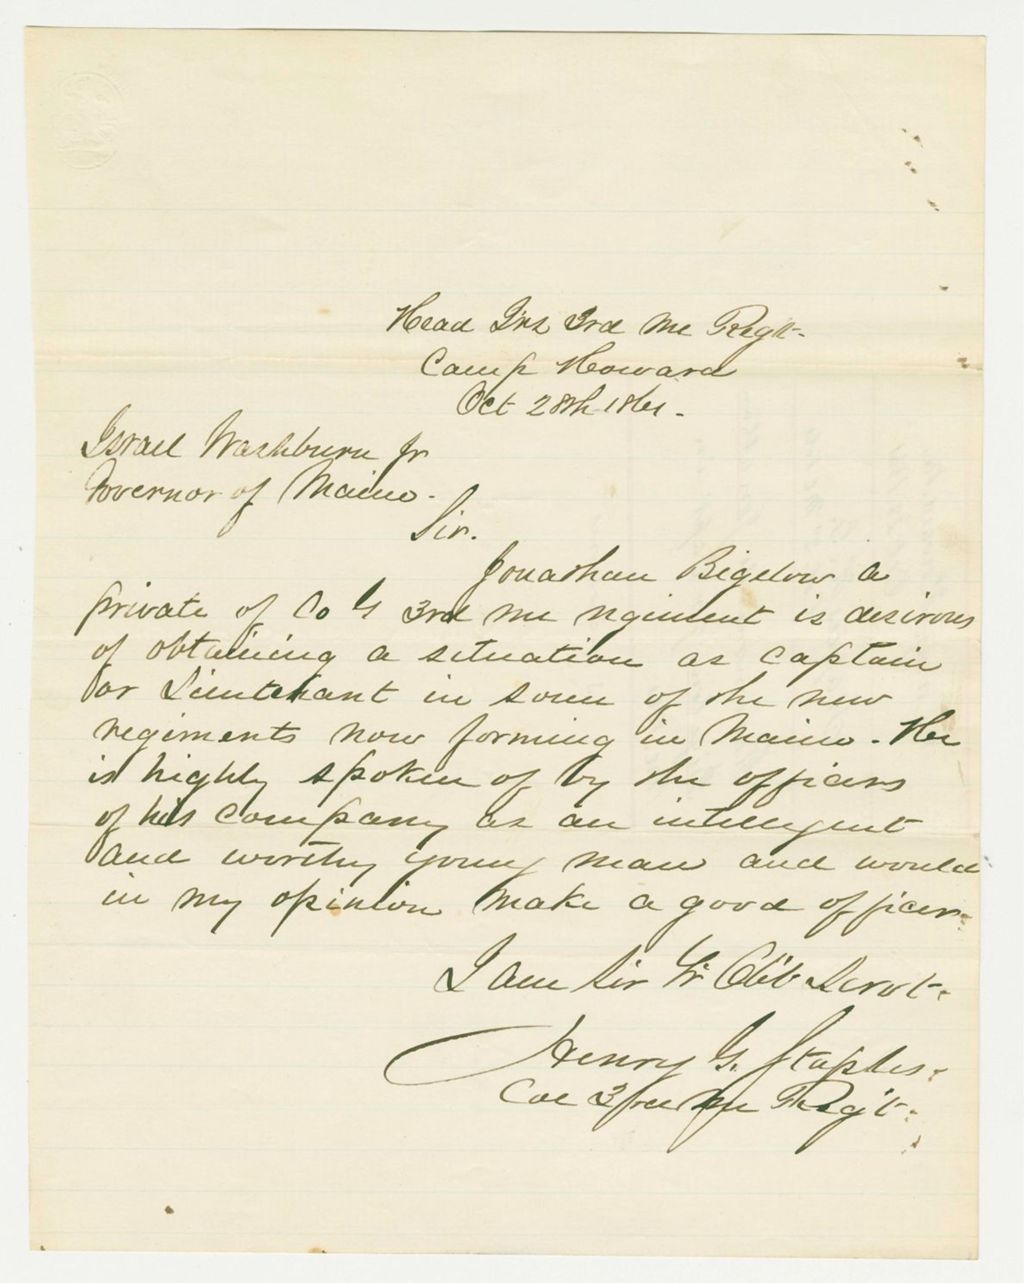 Head Qrs 3rd Me Regt.
Camp Howard
Oct 28th 1861.
Israel Washburn Jr
Governor of Maine.
Sir.
Jonathan Bigelow a
private of Co G 3rd Me regiment is desirous
of obtaining a situation as Captain
or Lieutenant in some of the new
regiments now forming in Maine. He
is highly spoken of by the officers
of his Company as an intelligent
and worthy young man and would
in my opinion make a good officer.
I am Sir Yr Obt Servt.
Henry G. Staples.
Col 3rd Me Reg't.